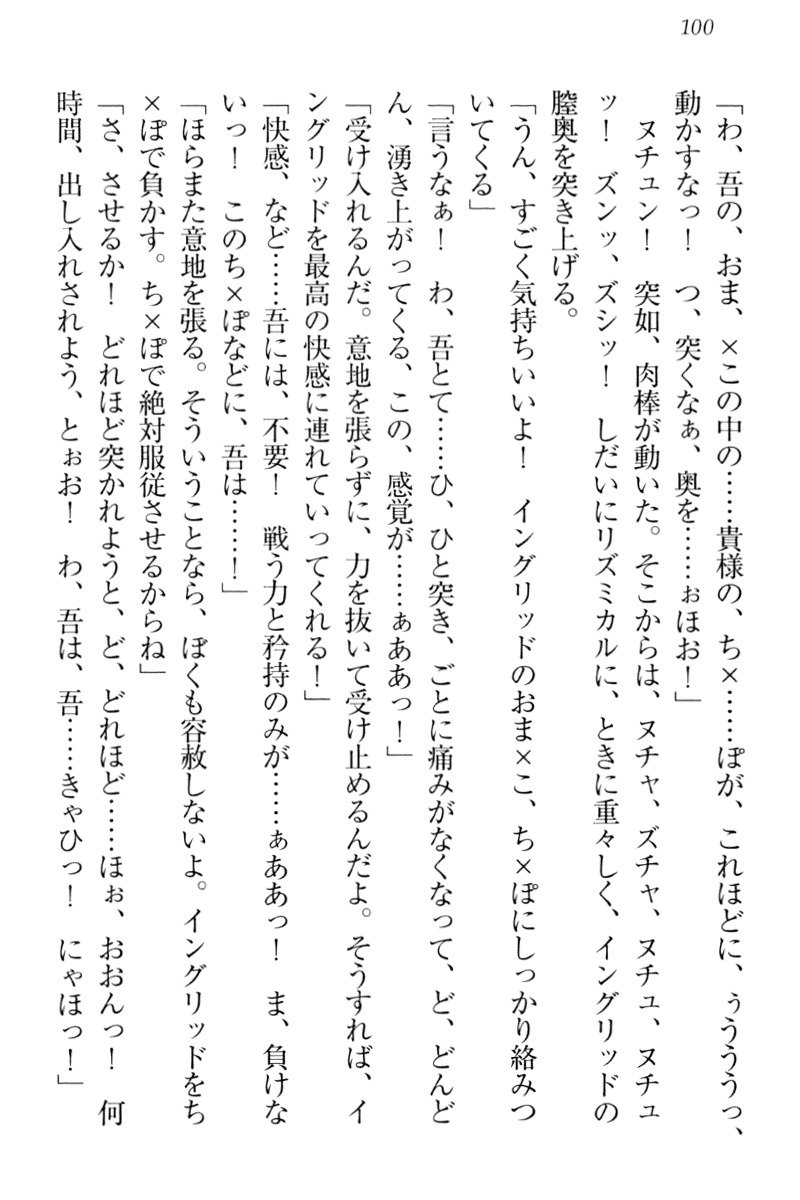 100
「わ、吾の、おま、×この中の……貴様の、ち×……ぽが、これほどに、ぅうううっ、
動かすなっ！　つ、突くなぁ、奥を……ぉほお！」
　ヌチュン！　突如、肉棒が動いた。そこからは、ヌチャ、ズチャ、ヌチュ、ヌチュ
ッ！　ズンッ、ズシッ！　しだいにリズミカルに、ときに重々しく、イングリッドの
膣奥を突き上げる。
「うん、すごく気持ちいいよ！　イングリッドのおま×こ、ち×ぽにしっかり絡みつ
いてくる」
「言うなぁ！　わ、吾とて……ひ、ひと突き、ごとに痛みがなくなって、ど、どんど
ん、湧き上がってくる、この、感覚が……ぁああっ！」
「受け入れるんだ。意地を張らずに、力を抜いて受け止めるんだよ。そうすれば、イ
ングリッドを最高の快感に連れていってくれる！」
「快感、など……吾には、不要！　戦う力と矜持のみが……ぁああっ！　ま、負けな
いっ！　このち×ぽなどに、吾は……！」
「ほらまた意地を張る。そういうことなら、ぼくも容赦しないよ。イングリッドをち
×ぽで負かす。ち×ぽで絶対服従させるからね」
「さ、させるか！　どれほど突かれようと、ど、どれほど……ほぉ、おおんっ！　何
時間、出し入れされよう、とぉお！　わ、吾は、吾……きゃひっ！　にゃほっ！」